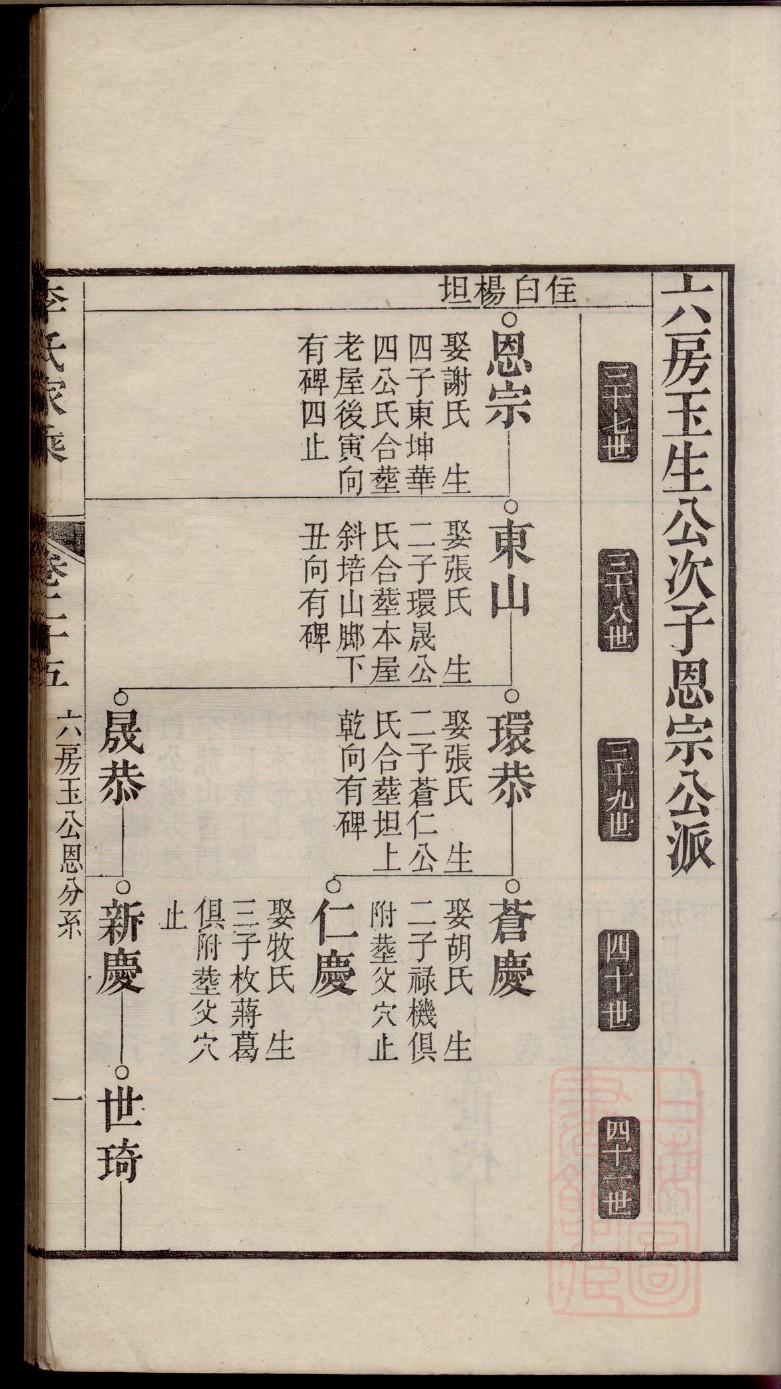 六房玉生公次子恩宗公派
三十七世
三十八世
三十九世
四十世
四十一世
住白楊坦
恩宗
娶謝氏　生
四子東坤華
四公氏合塟
老屋後寅向
有碑四止
東山
娶張氏　生
二子環晟公
氏合塟本屋
斜培山腳下
丑向有碑
環恭
娶張氏　生
二子蒼仁公
氏合塟坦上
乾向有碑
蒼慶
娶胡氏　生
二子禄機俱
附塟父穴止
仁慶
娶牧氏　生
三子枚蔣葛
俱附塟父穴
止
晟恭
新慶
世琦
李氏家乘
卷二十五
六房玉公恩分系
一